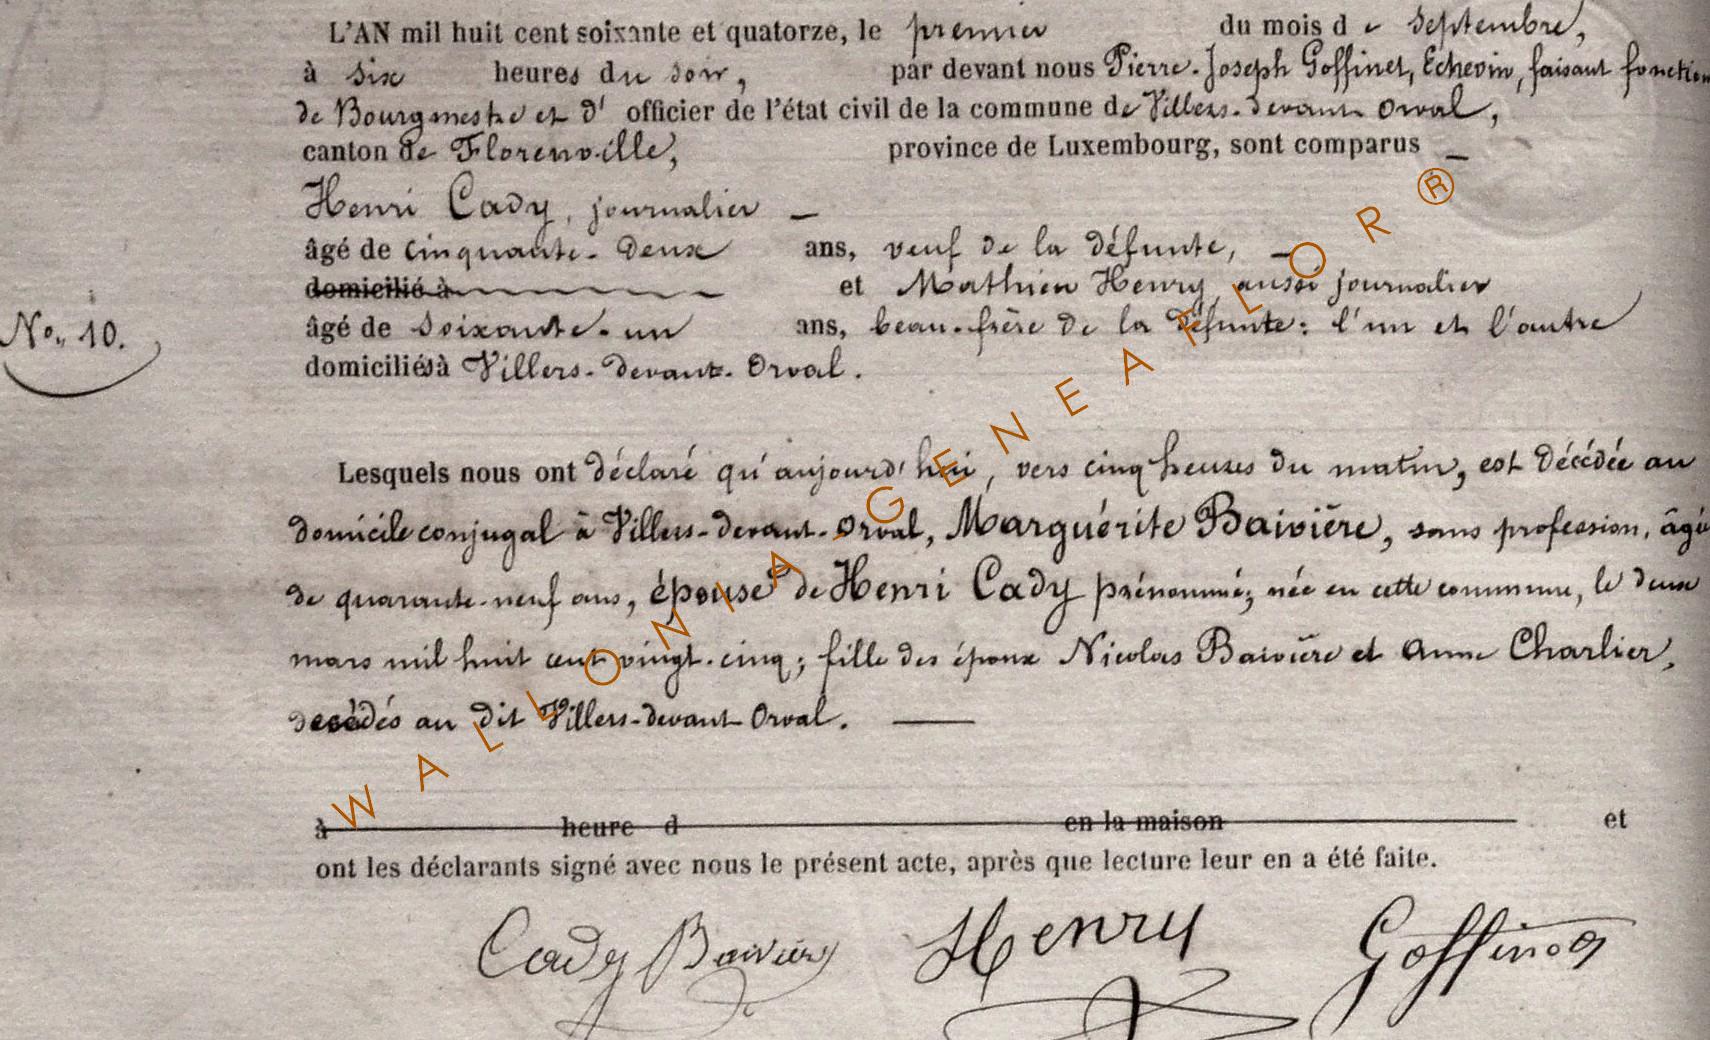 L'AN mil huit cent soixante et quatorze, le premier du mois de Septembre,
à six heures du soir, par devant nous Pierre-Joseph Goffinet, Echevin, faisant fonction
de Bourgmestre et d' officier de l'état civil de la commune de Villers-devant Orval,
canton de Florenville, province de Luxembourg, sont comparus —
Henri Cady, journalier —
âgé de cinquante-deux ans, veuf de la défunte, —
domicilié à et Mathieu Henry, aussi journalier
No. 10. âgé de soixante-un ans, beau-frère de la défunte: l'un et l'autre
domiciliés à Villers-devant-Orval.
Lesquels nous ont déclaré qu'aujourd'hui, vers cinq heures du matin, est décédée au
domicile conjugal à Villers-devant-Orval, Marguérite Baivière, sans profession, âgée
de quarante-neuf ans, épouse de Henri Cady prénommé; née en cette commune, le deux
mars mil huit cent vingt-cinq; fille des époux Nicolas Baivière et Anne Charlier,
decédés au dit Villers-devant Orval. —
à heure d en la maison et
ont les déclarants signé avec nous le présent acte, après que lecture leur en a été faite.
Cady Baiviere Henry Goffinet
WALLONIA-GENEAFLOR®